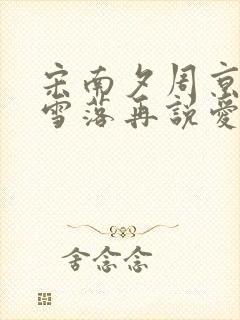 宋南夕周京
雪落再說愛
舍念念